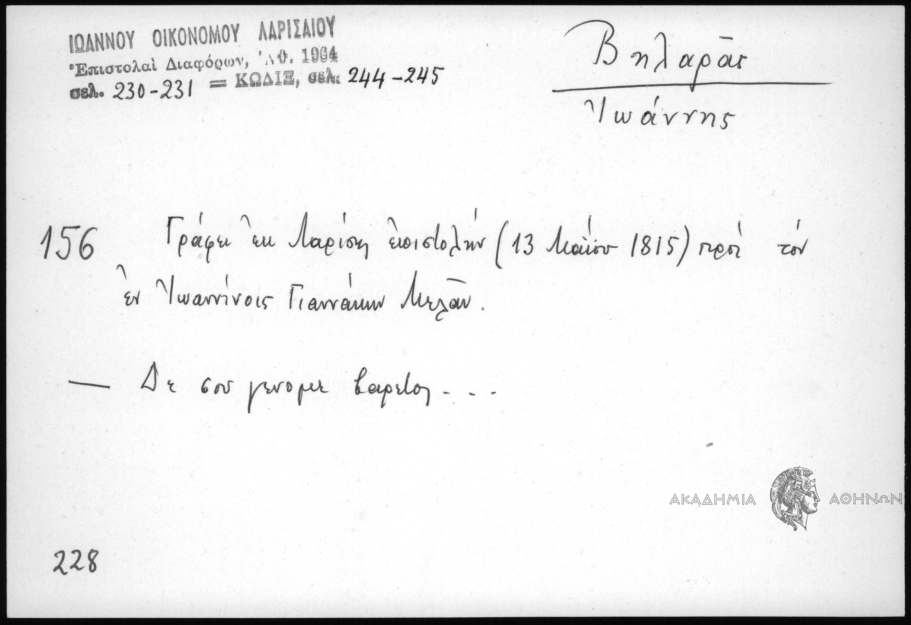 ΙΩΑΝΝΟΥ ΟΙΚΟΝΟΜΟΥ ΛΑΡΙΣΑΙΟΥ
Ἐπιστολαὶ Διαφόρων, Ἀθ. 1964
σελ. 230-231 = ΚΩΔΙΞ, σελ. 244-245
Βηλαρᾶς
Ἰωάννης
156 Γράφει ἐκ Λαρίσης ἐπιστολήν (13 Μαΐου 1815) πρὸς τόν
ἐν Ἰωαννίνοις Γιαννάκην Μελᾶν.
— Δε σου γενομε βαρετος . . .
ΑΚΑΔΗΜΙΑ ΑΘΗΝΩΝ
228